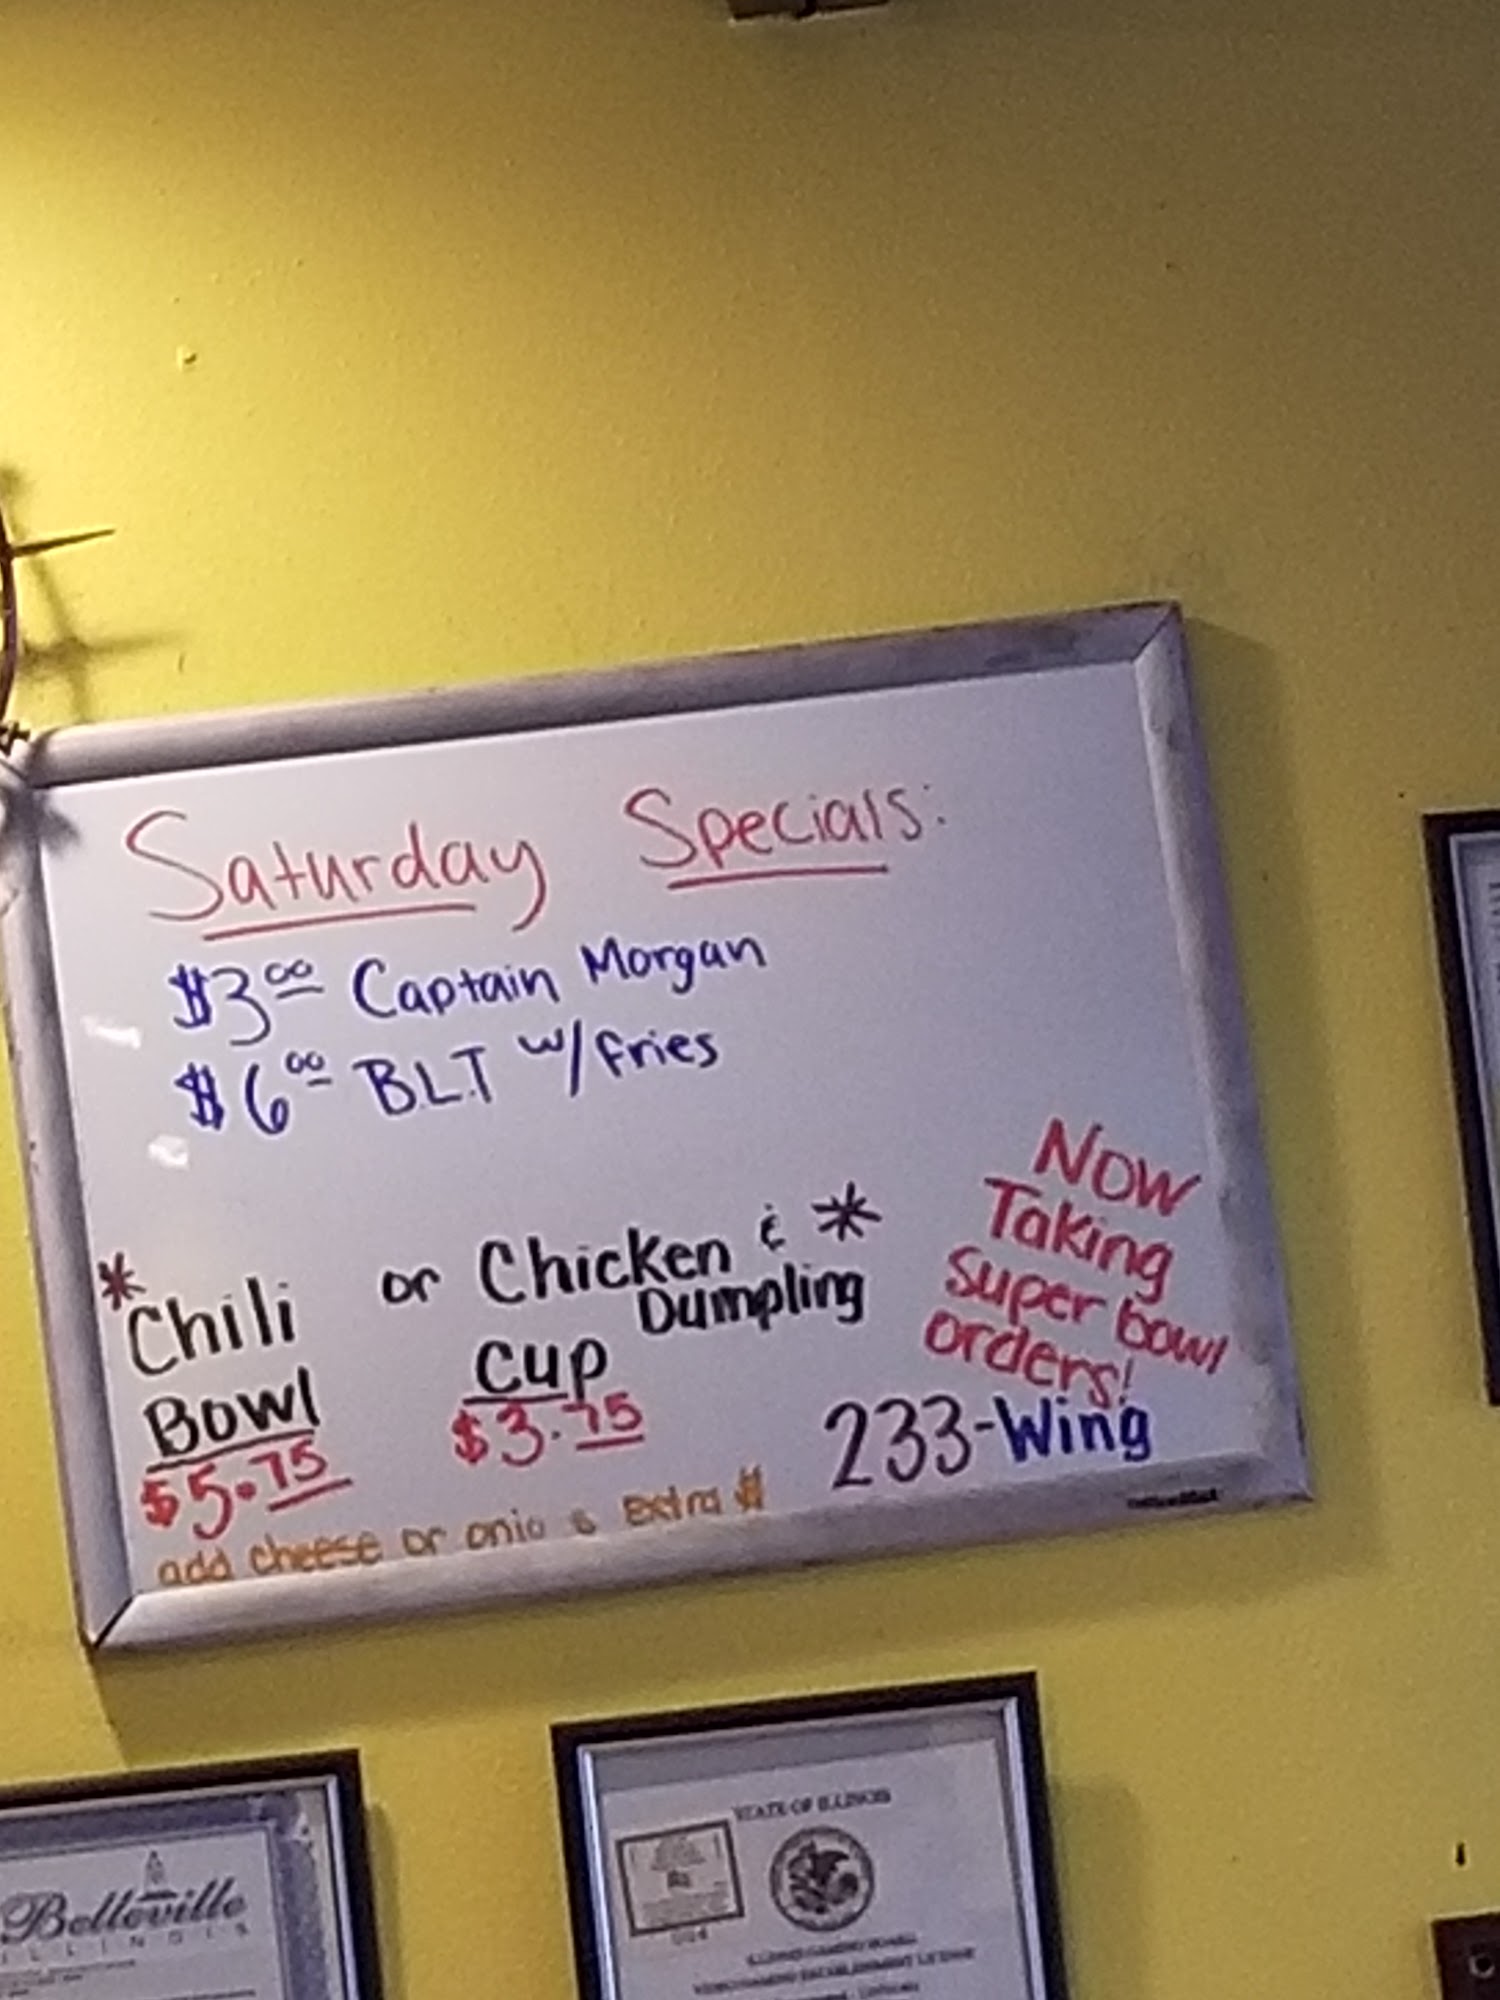 Saturday Specials:
$3.00 Captain Morgan
$6.00 B.L.T w/fries
*Chili or Chicken & *
Dumpling
Bowl Cup
$5.75 $3.75
add cheese or onio s extra $
Now
Taking
Super bowl
orders!
233-Wing
Belleville
ILLINOIS
STATE OF ILLINOIS
ILLINOIS GAMING BOARD
VIDEO GAMING ESTABLISHMENT LICENSE